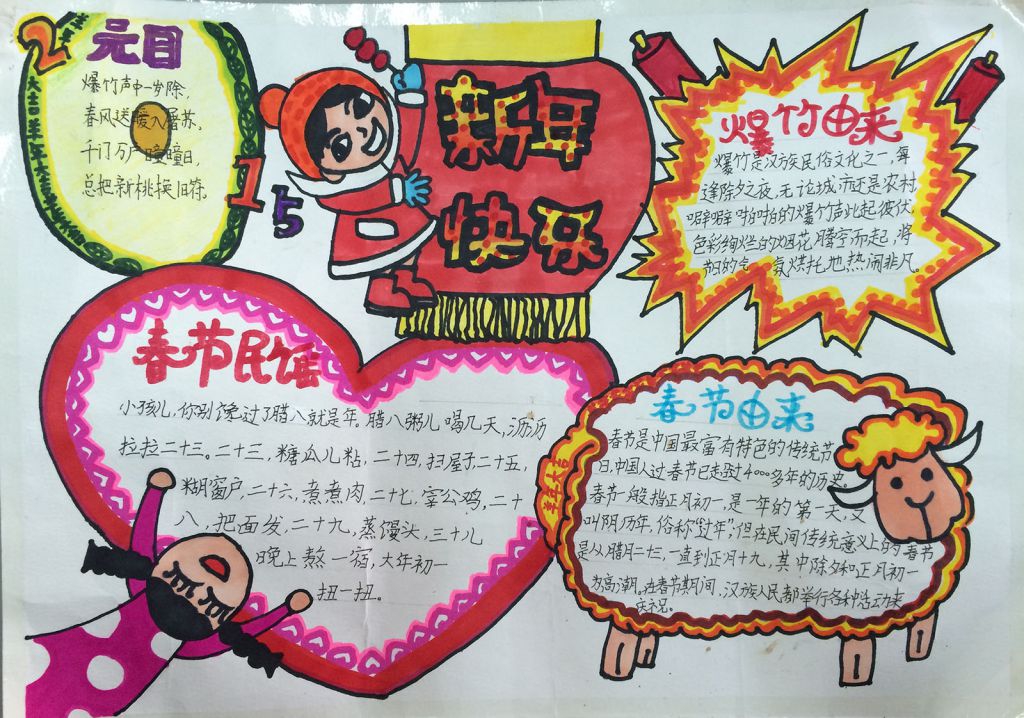 2
元日
爆竹声中一岁除,
春风送暖入屠苏。
千门万户曈曈日,
总把新桃换旧符。
15
新年
快乐
爆竹由来
爆竹是汉族民俗文化之一,每
逢除夕之夜,无论城市还是农村
噼噼啪啪的爆竹声此起彼伏,
色彩绚烂的烟花腾空而起,将
节日的气氛烘托地热闹非凡。
春节民谣
小孩儿,你别馋过了腊八就是年。腊八粥儿喝几天,沥沥
拉拉二十三。二十三,糖瓜儿粘,二十四,扫屋子二十五,
糊窗户,二十六,煮煮肉,二十七,宰公鸡,二十
八,把面发,二十九,蒸馒头,三十儿
晚上熬一宿,大年初一
扭一扭。
春节由来
春节是中国最富有特色的传统节
日,中国人过春节已走超过4000多年的历史。
春节一般指正月初一,是一年的第一天,又
叫阴历年,俗称"过年";但在民间传统意义上的春节
是从腊月二十三,一直到正月十九,其中除夕和正月初一
为高潮。在春节期间,汉族人民都举行各种活动来
庆祝。
羊年大吉